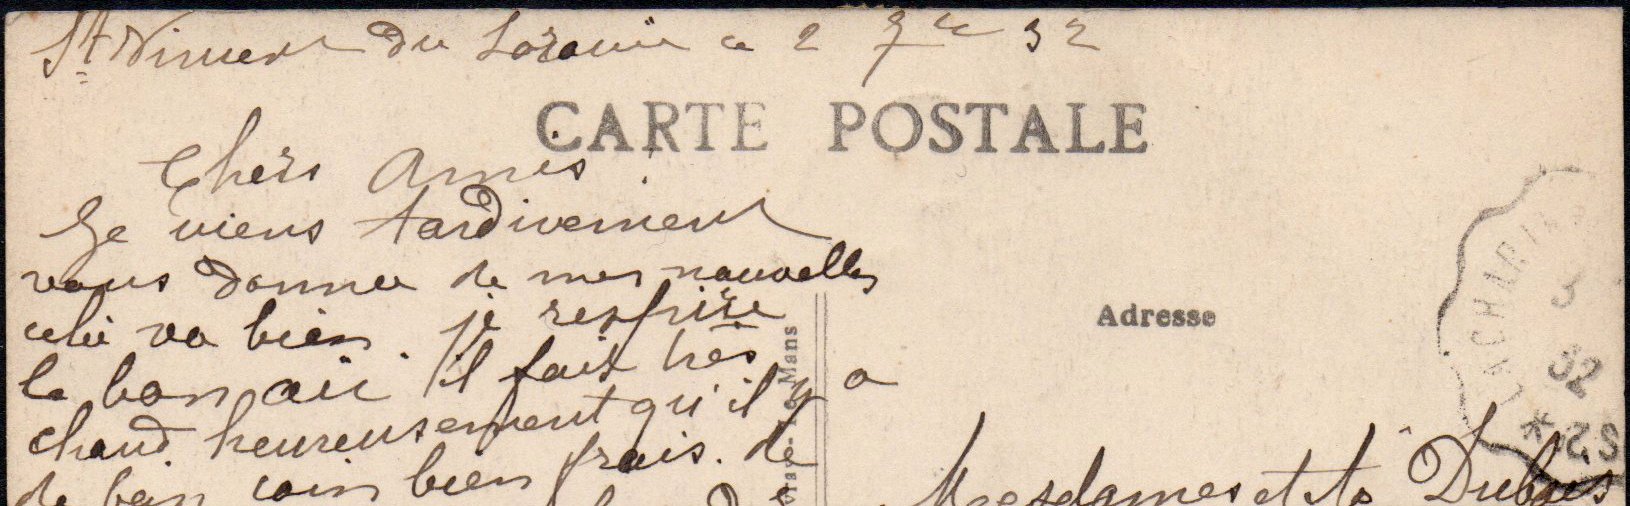 St Vincent du Lorouër ce 2 7bre 32
CARTE POSTALE
Chers Amis
Je viens tardivement
vous donner de mes nouvelles
cela va bien. je respire
le bon air il fait très
chaud heureusement qu'il y a
de bon coin bien frais. de
Adresse
Le Mans
LACHARTRE
3
32
*
Mesdames et Dubois